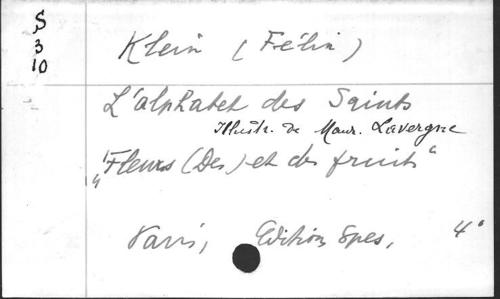 S
3
10
Klein (Félix)
L'alphabet des Saints
Illustr. de Maur. Lavergne
"Fleurs (Des) et des fruits"
Paris, Edition Spes, 4°